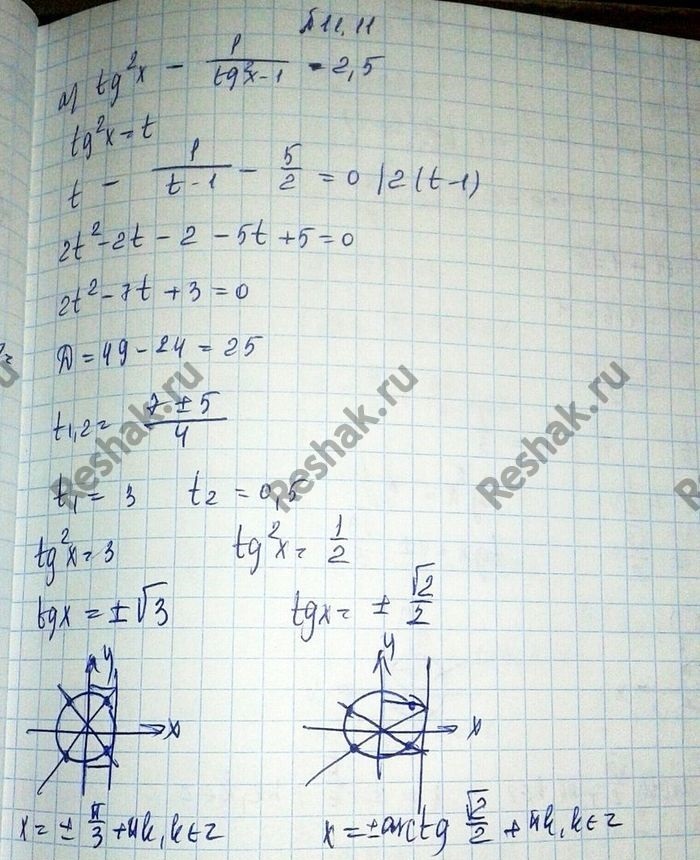 П 11.11
а) tg²x - 1/(tg²x-1) = 2,5
tg²x = t
t - 1/(t-1) - 5/2 = 0 | 2(t-1)
2t² - 2t - 2 - 5t + 5 = 0
2t² - 7t + 3 = 0
D = 49 - 24 = 25
t1,2 = (7 ± 5)/4
t₁ = 3 t₂ = 0,5
tg²x = 3 tg²x = 1/2
tgx = ±√3 tgx = ± √2/2
y y
x x
x = ± π/3 + πk, k∈z x = ± arctg √2/2 + πk, k∈z
Reshak.ru
Reshak.ru
Reshak.ru